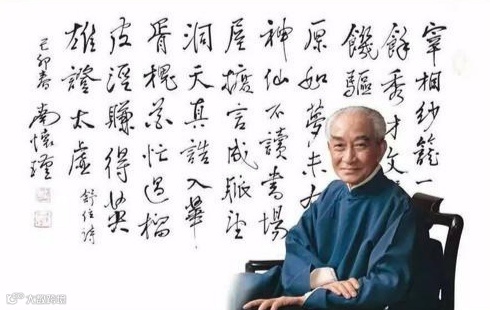 宰相紗籠一
餘秀才文
饑驅
原如夢未
神仙不讀書場
屋摭言成脈望
洞天真誥入華
胥槐花忙過榴
皮溼賺得英
雄證太虛
舒位詩
己卯春 南懷瑾